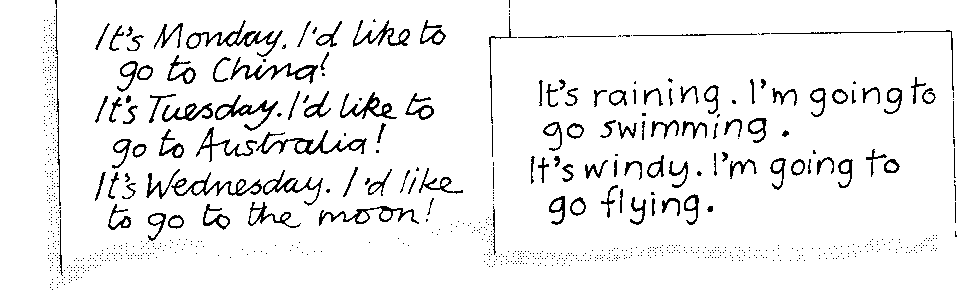 It's Monday. I'd like to
go to China!
It's Tuesday. I'd like to
go to Australia!
It's Wednesday. I'd like
to go to the moon!
It's raining. I'm going to
go swimming.
It's windy. I'm going to
go flying.